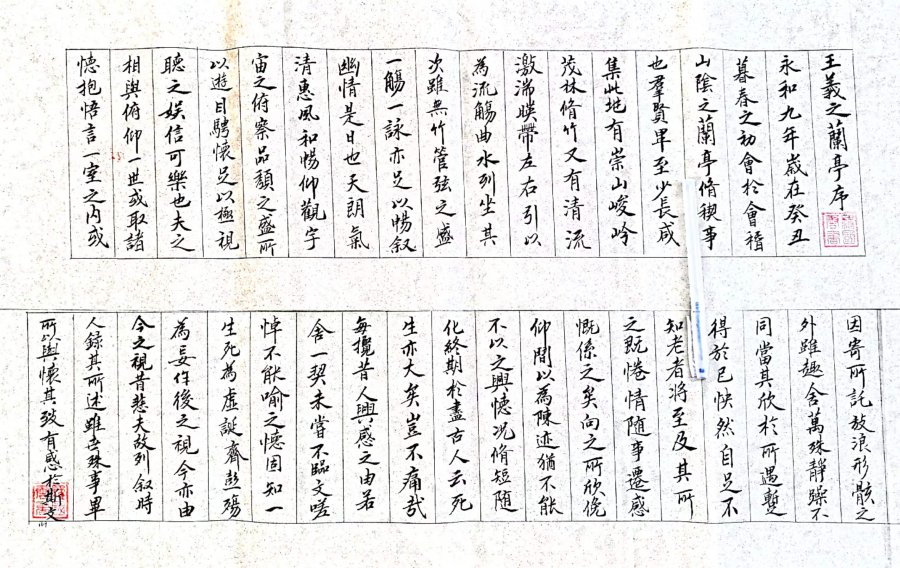 王羲之蘭亭序
永和九年歲在癸丑
暮春之初會於會稽
山陰之蘭亭脩稧事
也羣賢畢至少長咸
集此地有崇山峻岭
茂林脩竹又有清流
激湍暎帶左右引以
為流觴曲水列坐其
次雖無竹管弦之盛
一觴一詠亦足以暢叙
幽情是日也天朗氣
清惠風和暢仰觀宇
宙之俯察品類之盛所
以遊目騁懷足以極視
聽之娱信可樂也夫之
相與俯仰一世或取諸
懷抱悟言一室之内或
因寄所託放浪形骸之
外雖趣舍萬殊靜躁不
同當其欣於所遇蹔
得於己怏然自足不
知老者將至及其所
之既惓情随事遷感
慨係之矣向之所欣俛
仰間以為陳迹猶不能
不以之興懷况脩短随
化終期於盡古人云死
生亦大矣豈不痛哉
每攬昔人興感之由若
合一契未嘗不臨文嗟
悼不能喻之懷固知一
生死為虚誕齊彭殤
為妄作後之視今亦由
今之視昔悲夫故列叙時
人録其所述雖世殊事異
所以興懷其致有感於斯文